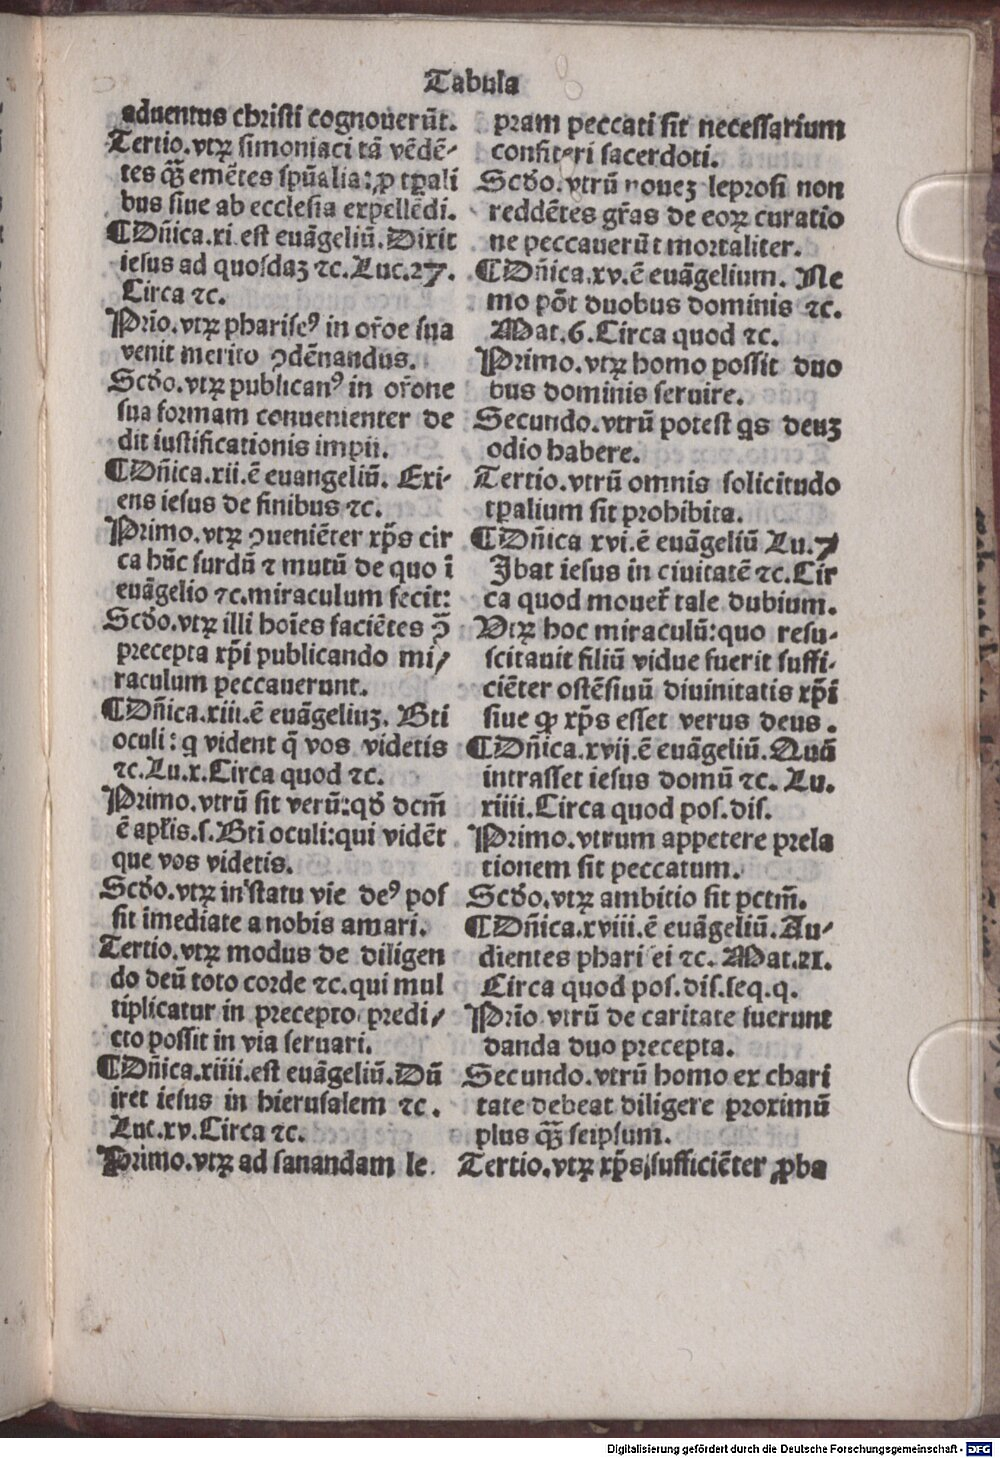 Tabula
aduentus christi cognouerūt.
Tertio.vtꝝ simoniaci tā vēdē-
tes qꝫ̄ emētes spūalia: ꝓ tꝑali
bus siue ab ecclesia expellēdi.
¶Dñica.xi est euāgeliū. Dixit
iesus ad quosdaꝫ ⁊c. Luc.27.
Circa ⁊c.
Prio.vtꝝ phariseꝰ in or̄oe sua
venit merito ꝯdēnandus.
Scdo.vtꝝ publicanꝰ in or̄one
sua formam conuenienter de
dit iustificationis impii.
¶Dñica.xii.ē euangeliū. Exi-
ens iesus de finibus ⁊c.
Primo.vtꝝ ꝯueniēter xp̄s cir
ca hūc surdū ⁊ mutū de quo ī
euāgelio ⁊c. miraculum fecit:
Scdo.vtꝝ illi hoīes faciētes ꝯ̄
precepta xp̄i publicando mi/
raculum peccauerunt.
¶Dñica.xiii.ē euāgeliuꝫ. Bti
oculi: q vident q̄ vos videtis
⁊c. Lu.x. Circa quod ⁊c.
Primo.vtrū sit verū: qđ dcm̄
ē apl̄is.s. Bti oculi: qui vidēt
que vos videtis.
Scdo.vtꝝ in statu vie deꝰ pos
sit īmediate a nobis amari.
Tertio.vtꝝ modus de diligen
do deū toto corde ⁊c. qui mul
tiplicatur in precepto predi/
cto possit in via seruari.
¶Dñica.xiiii.est euāgeliū. Dū
iret iesus in hierusalem ⁊c.
Luc.xv. Circa ⁊c.
Primo.vtꝝ ad sanandam le
pram peccati sit necessarium
confiteri sacerdoti.
Scdo.vtrū noueꝫ leprosi non
reddētes gr̄as de eoꝝ curatio
ne peccauerūt mortaliter.
¶Dñica.xv.ē euāgelium. Ne
mo pōt duobus dominis ⁊c.
Mat.6. Circa quod ⁊c.
Primo.vtꝝ homo possit duo
bus dominis seruire.
Secundo.vtrū potest qs deuꝫ
odio habere.
Tertio.vtrū omnis solicitudo
tꝑalium sit prohibita.
¶Dñica xvi.ē euāgeliū Lu.7
Ibat iesus in ciuitatē ⁊c. Cir
ca quod mouet̄ tale dubium.
Vtꝝ hoc miraculū: quo resu-
scitauit filiū vidue fuerit suffi-
ciēter ostēsiuū diuinitatis xp̄i
siue ꝙ xp̄s esset verus deus.
¶Dñica.xvij.ē euāgeliū. Quū
intrasset iesus domū ⁊c. Lu.
xiiii. Circa quod pos.dis.
Primo.vtrum appetere prela
tionem sit peccatum.
Scdo.vtꝝ ambitio sit pctm̄.
¶Dñica.xviii.ē euāgeliū. Au-
dientes pharisei ⁊c. Mat.21.
Circa quod pos.dis.seq.q.
Prio vtrū de caritate fuerunt
danda duo precepta.
Secundo.vtrū homo ex chari
tate debeat diligere proximū
plus qꝫ̄ seipsum.
Tertio.vtꝝ xp̄s sufficiēter ꝓba
Digitalisierung gefördert durch die Deutsche Forschungsgemeinschaft - DFG